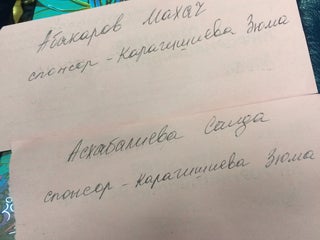 Абакаров Махач
спонсор - Карагишиева Зюма
Асхабалиева Саида
спонсор - Карагишиева Зюма